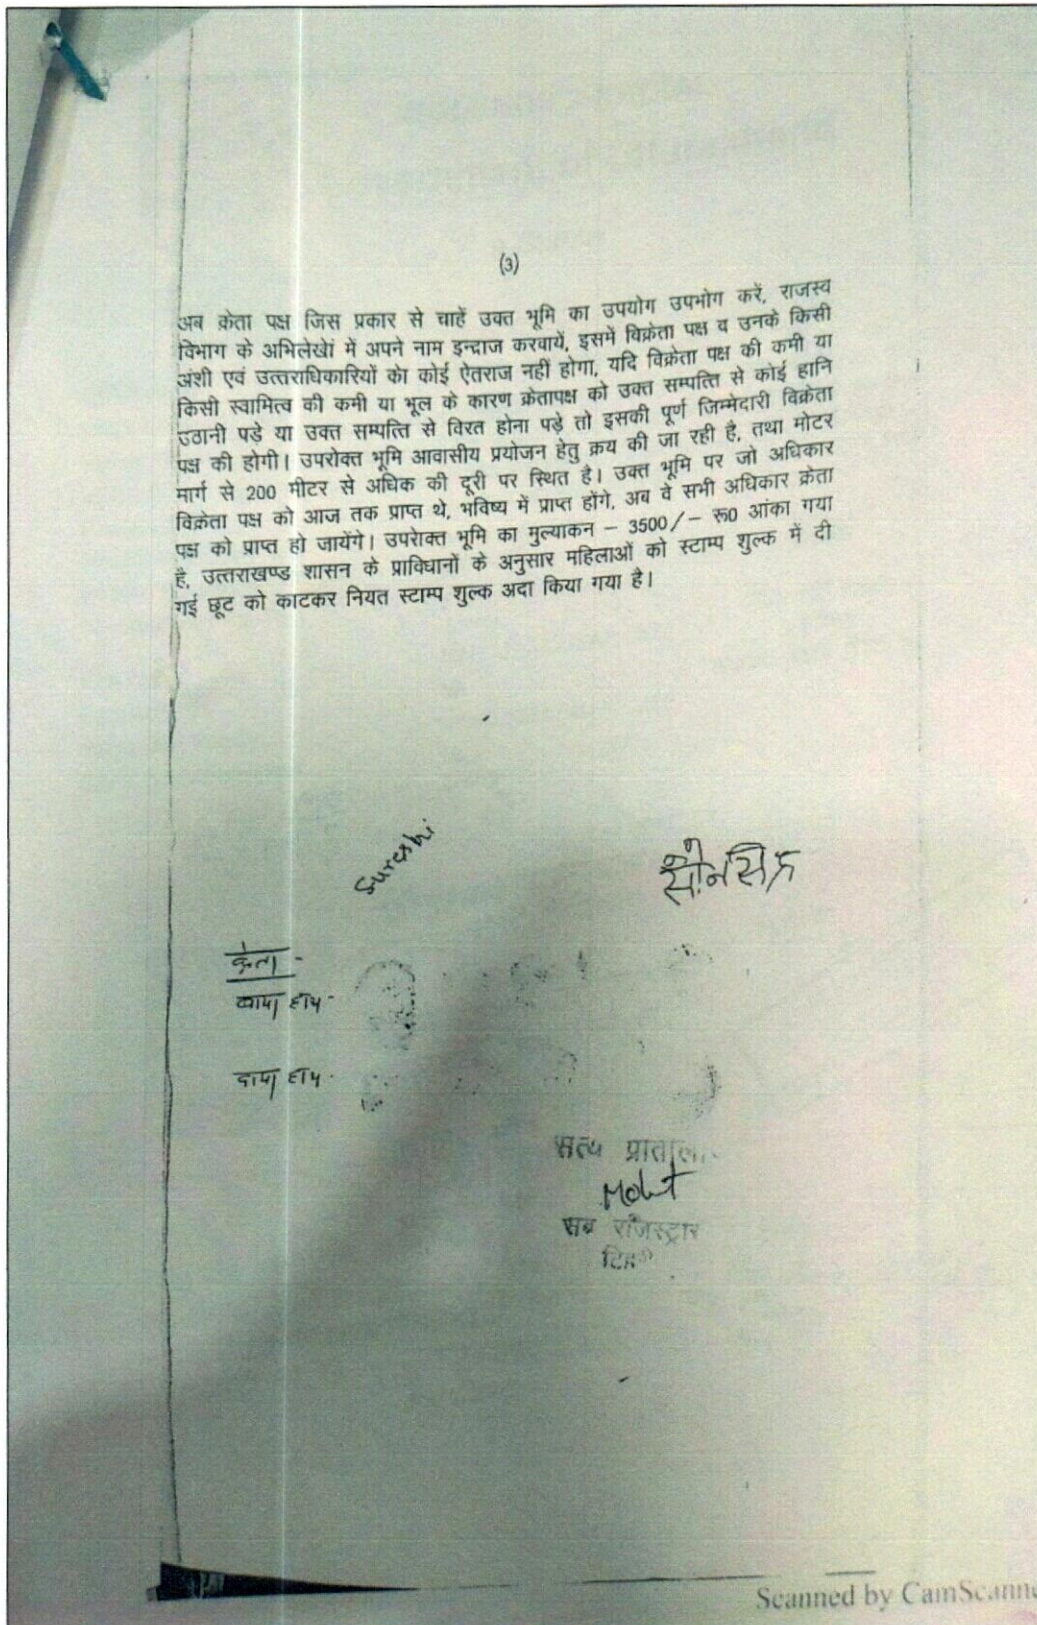 (3)
अब क्रेता पक्ष जिस प्रकार से चाहें उक्त भूमि का उपयोग उपभोग करें, राजस्व
विभाग के अभिलेखों में अपने नाम इन्द्राज करवायें, इसमें विक्रेता पक्ष व उनके किसी
अंशी एवं उत्तराधिकारियों को कोई ऐतराज नहीं होगा, यदि विक्रेता पक्ष की कमी या
किसी स्वामित्व की कमी या भूल के कारण क्रेतापक्ष को उक्त सम्पत्ति से कोई हानि
उठानी पड़े या उक्त सम्पत्ति से विरत होना पड़े तो इसकी पूर्ण जिम्मेदारी विक्रेता
पक्ष की होगी। उपरोक्त भूमि आवासीय प्रयोजन हेतु क्रय की जा रही है, तथा मोटर
मार्ग से 200 मीटर से अधिक की दूरी पर स्थित है। उक्त भूमि पर जो अधिकार
विक्रेता पक्ष को आज तक प्राप्त थे, भविष्य में प्राप्त होंगे, अब वे सभी अधिकार क्रेता
पक्ष को प्राप्त हो जायेंगे। उपरोक्त भूमि का मुल्याकन – 3500/– रू0 आंका गया
है, उत्तराखण्ड शासन के प्राविधानों के अनुसार महिलाओं को स्टाम्प शुल्क में दी
गई छूट को काटकर नियत स्टाम्प शुल्क अदा किया गया है।
क्रेता -
बाया हाथ -
दाया हाथ -
सत्य
Mohit
सब रजिस्ट्रार
Scanned by CamScanne